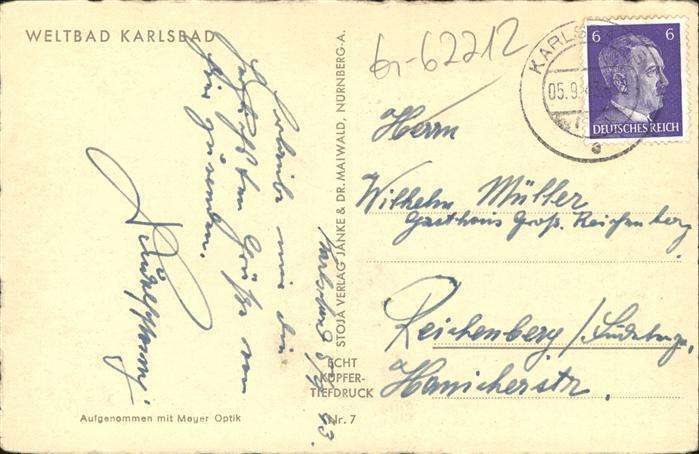 WELTBAD KARLSBAD
Karlsbad 5/9 43.
Erlaube mir die
Grüße von
hier zu senden.
STOJA VERLAG JANKE & DR. MAIWALD, NÜRNBERG-A.
ECHT
KUPFER-
TIEFDRUCK
Nr. 7
Aufgenommen mit Meyer Optik
6-62212
KARLS
05.9.
6 6
DEUTSCHES REICH
Herrn
Wilhelm Müller
Gasthaus Groß. Reichenberg
Reichenberg/Sudetengau
Hanicherstr.